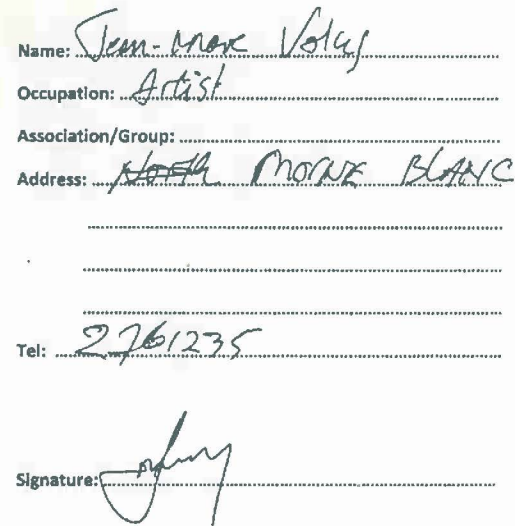 Name: Jean-Marc Volcy
Occupation: Artist
Association/Group:
Address: North MORNE BLANC
Tel: 2761235
Signature: